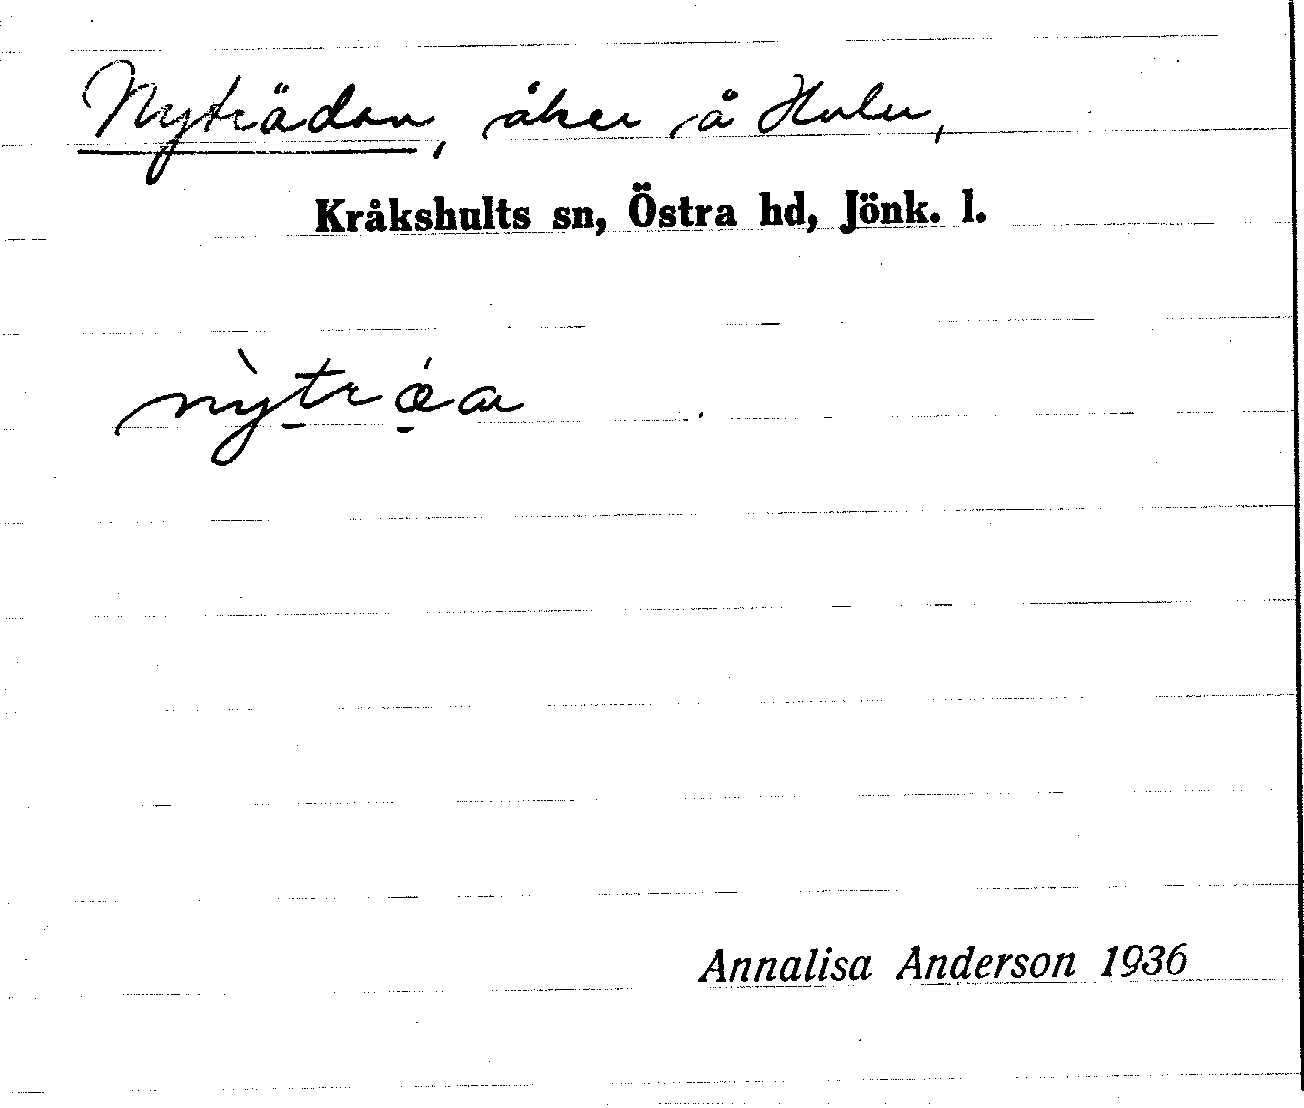 Nyträdan, åker å Hulu,
Kråkshults sn, Östra hd, Jönk. l.
nỳtrǽa
Annalisa Anderson 1936